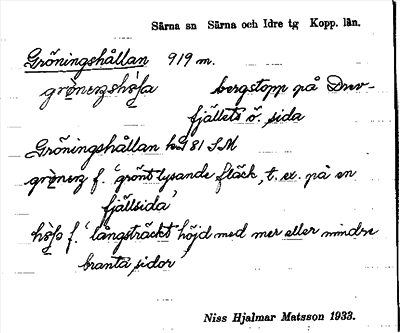 Särna sn Särna och Idre tg Kopp. län.
Gröningshållan 919 m.
bergstopp på Drev-
fjällets ö. sida
Gröningshållan kg 81 SM
f. 'grönt lysande fläck, t. ex. på en
fjällsida'
f. 'långsträckt höjd med mer eller mindre
branta sidor'
Niss Hjalmar Matsson 1933.